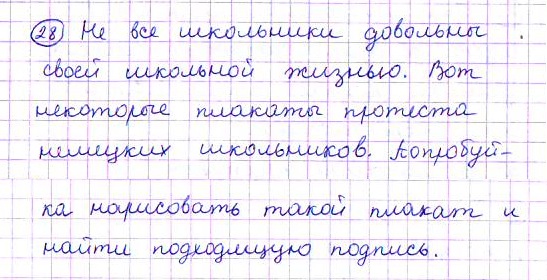 28 Не все школьники довольны
своей школьной жизнью. Вот
некоторые плакаты протеста
немецких школьников. Попробуй-
ка нарисовать такой плакат и
найти подходящую подпись.